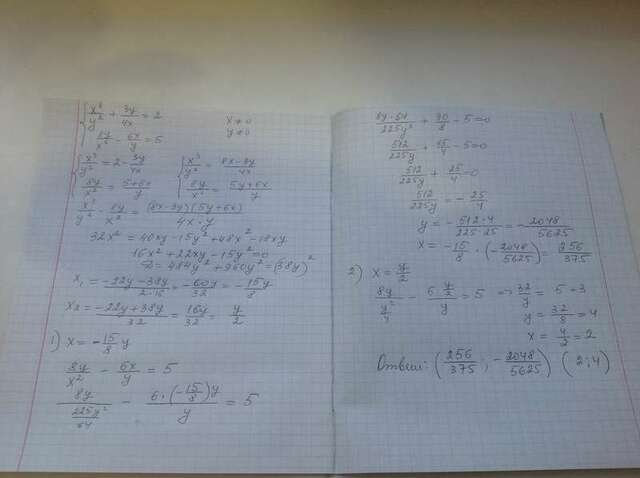 { x³/y² + 3y/4x = 2    x≠0
{ 8y/x² - 6x/y = 5    y≠0
{ x³/y² = 2 - 3y/4x    { x³/y² = 8x-3y/4x
{ 8y/x² = 5+6x/y    { 8y/x² = 5y+6x/y
x³/y² · 8y/x² = (8x-3y)(5y+6x)/4x·y
32x² = 40xy - 15y² + 48x² - 18xy
16x² + 22xy - 15y² = 0
D = 484y² + 960y² = (38y)²
x₁ = -22y-38y/2·16 = -60y/32 = -15y/8
x₂ = -22y+38y/32 = 16y/32 = y/2
1) x = -15/8 y
8y/x² - 6x/y = 5
8y/225y²/64 - 6·(-15/8)y/y = 5
8y·64/225y² + 90/8 - 5 = 0
512/225y + 45/4 - 5 = 0
512/225y + 25/4 = 0
512/225y = - 25/4
y = - 512·4/225·25 = -2048/5625
x = -15/8 · (-2048/5625) = 256/375
2) x = y/2
8y/y²/4 - 6·y/2/y = 5 ⇒ 32/y = 5+3
y = 32/8 = 4
x = 4/2 = 2
Ответ: (256/375 ; -2048/5625) (2;4)